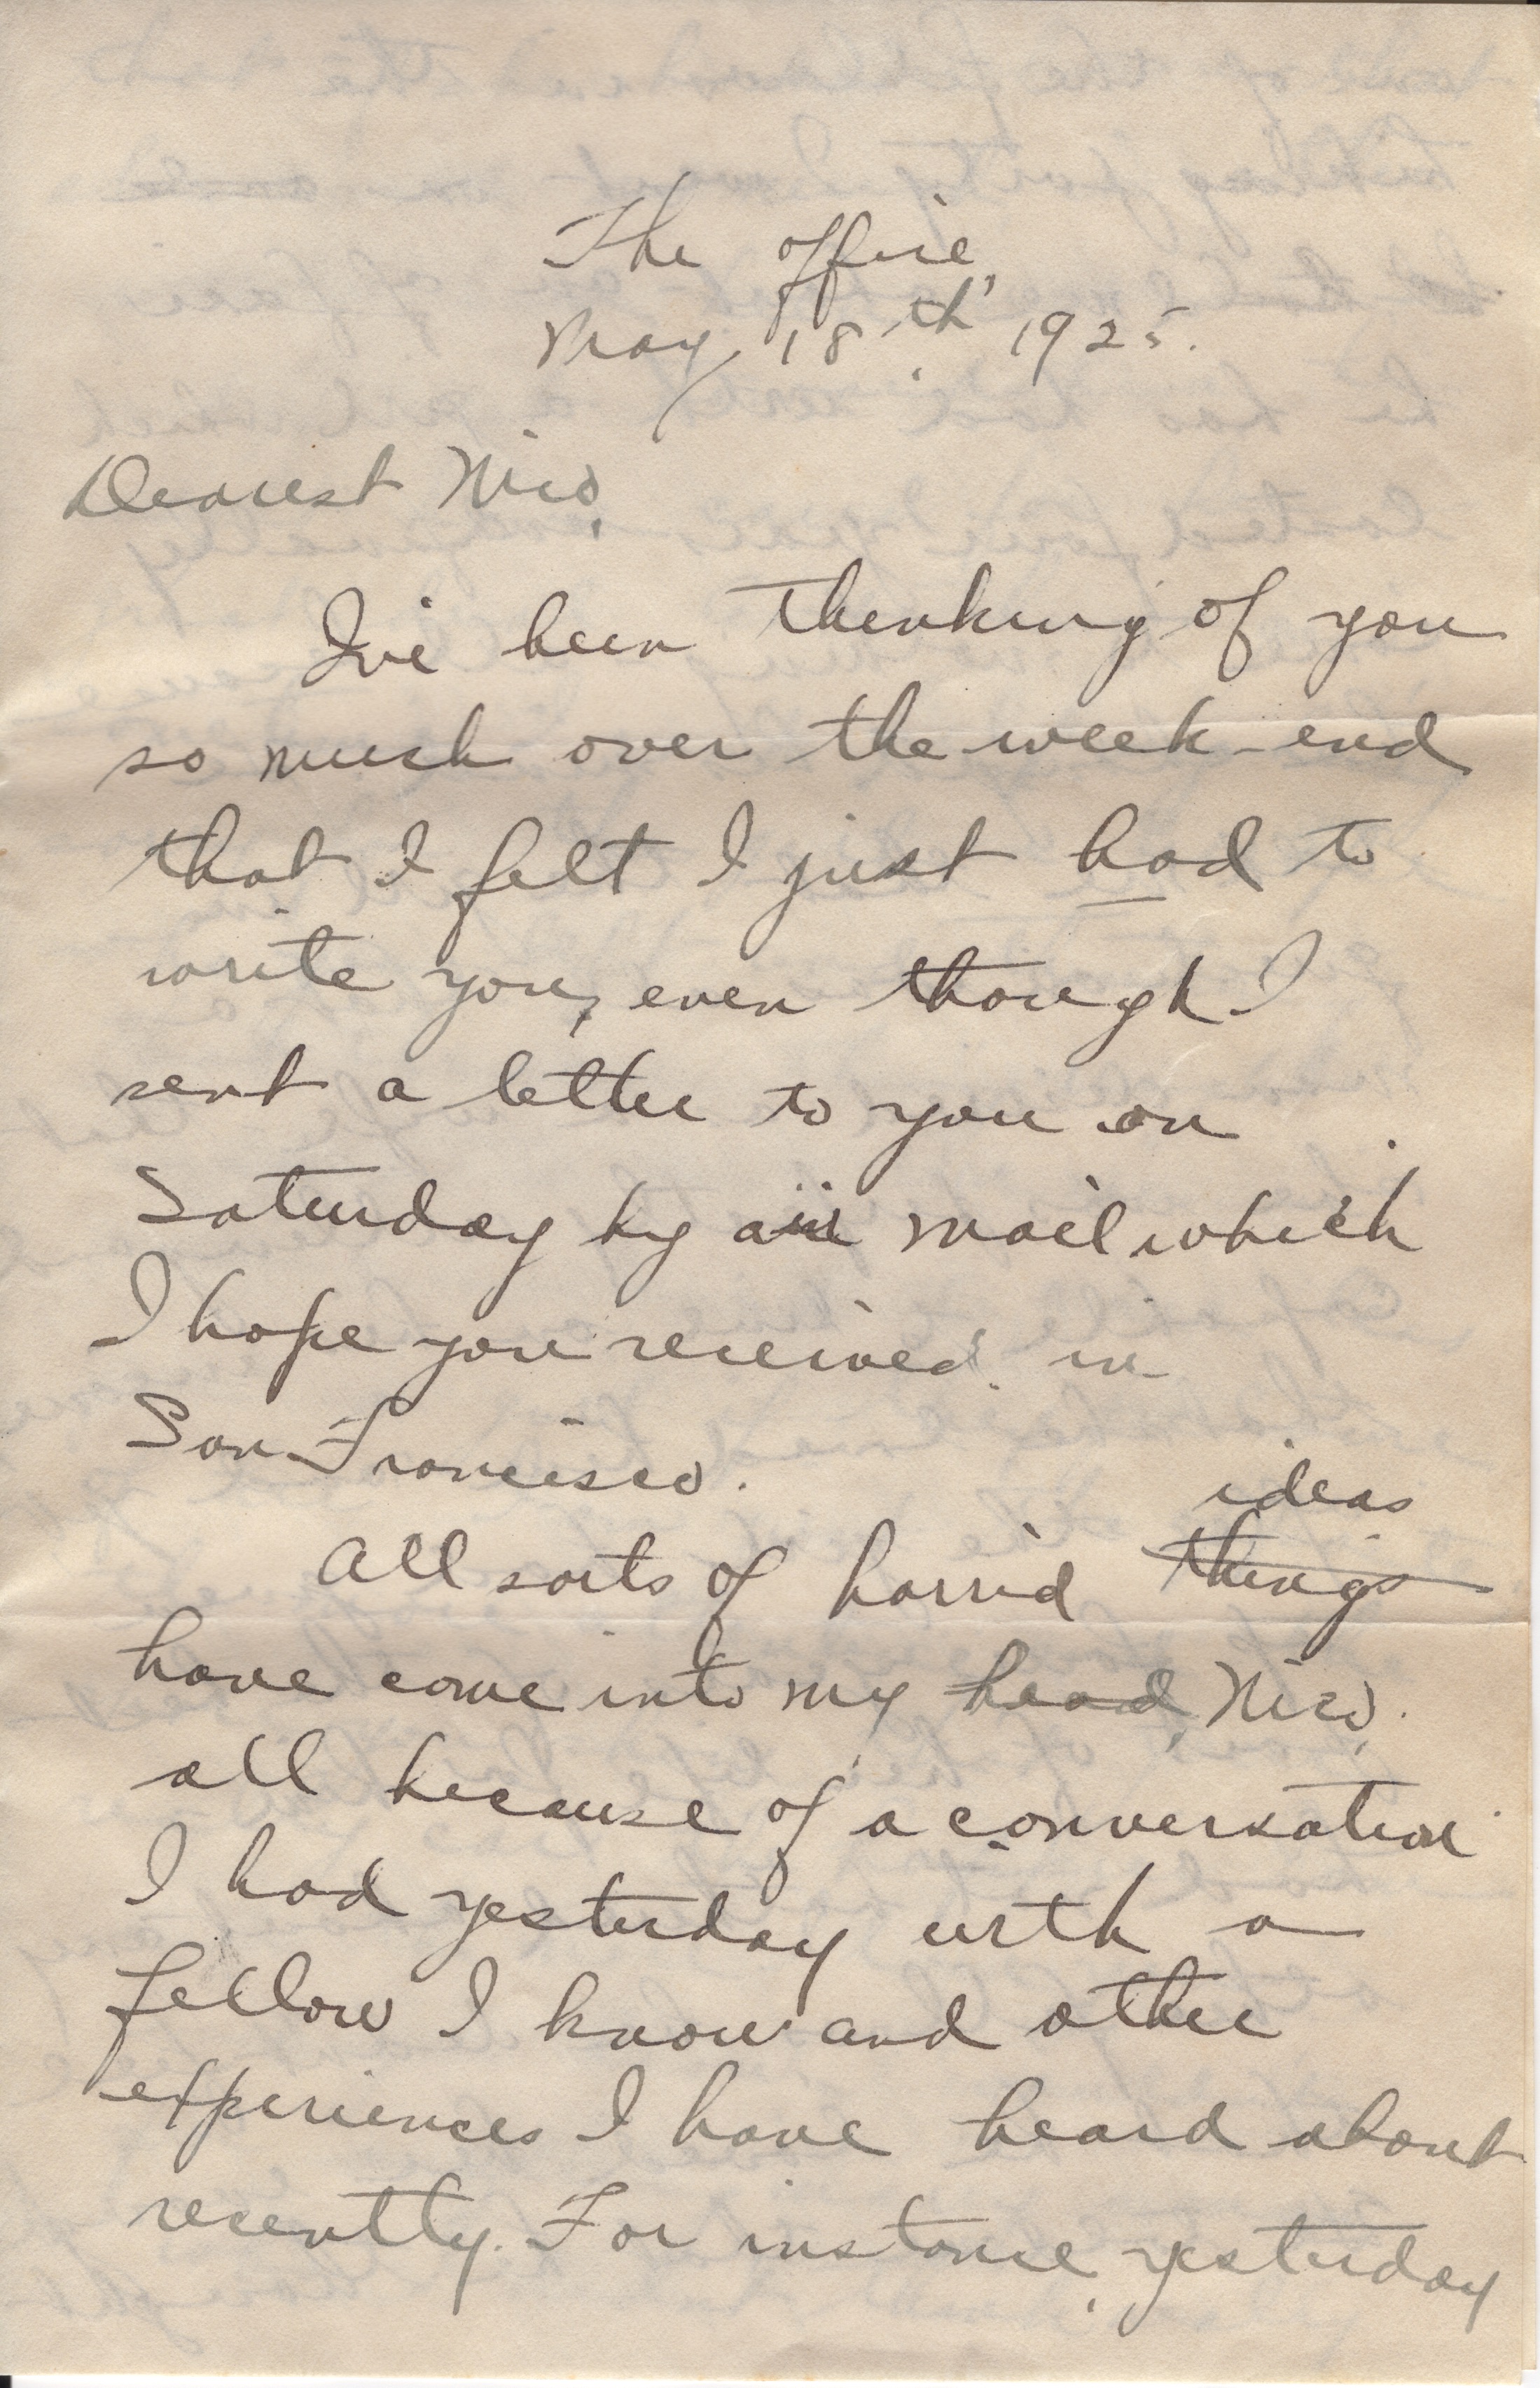 The office,
May 18th, 1925.
Dearest Nico,
I've been thinking of you
so much over the week-end
that I felt I just had to
write you, even though I
sent a letter to you on
Saturday by air mail which
I hope you received in
San Francisco.
ideas
All sorts of horrid things
have come into my head, Nico,
all because of a conversation
I had yesterday with a
fellow I know and other
experiences I have heard about
recently. For instance, yesterday